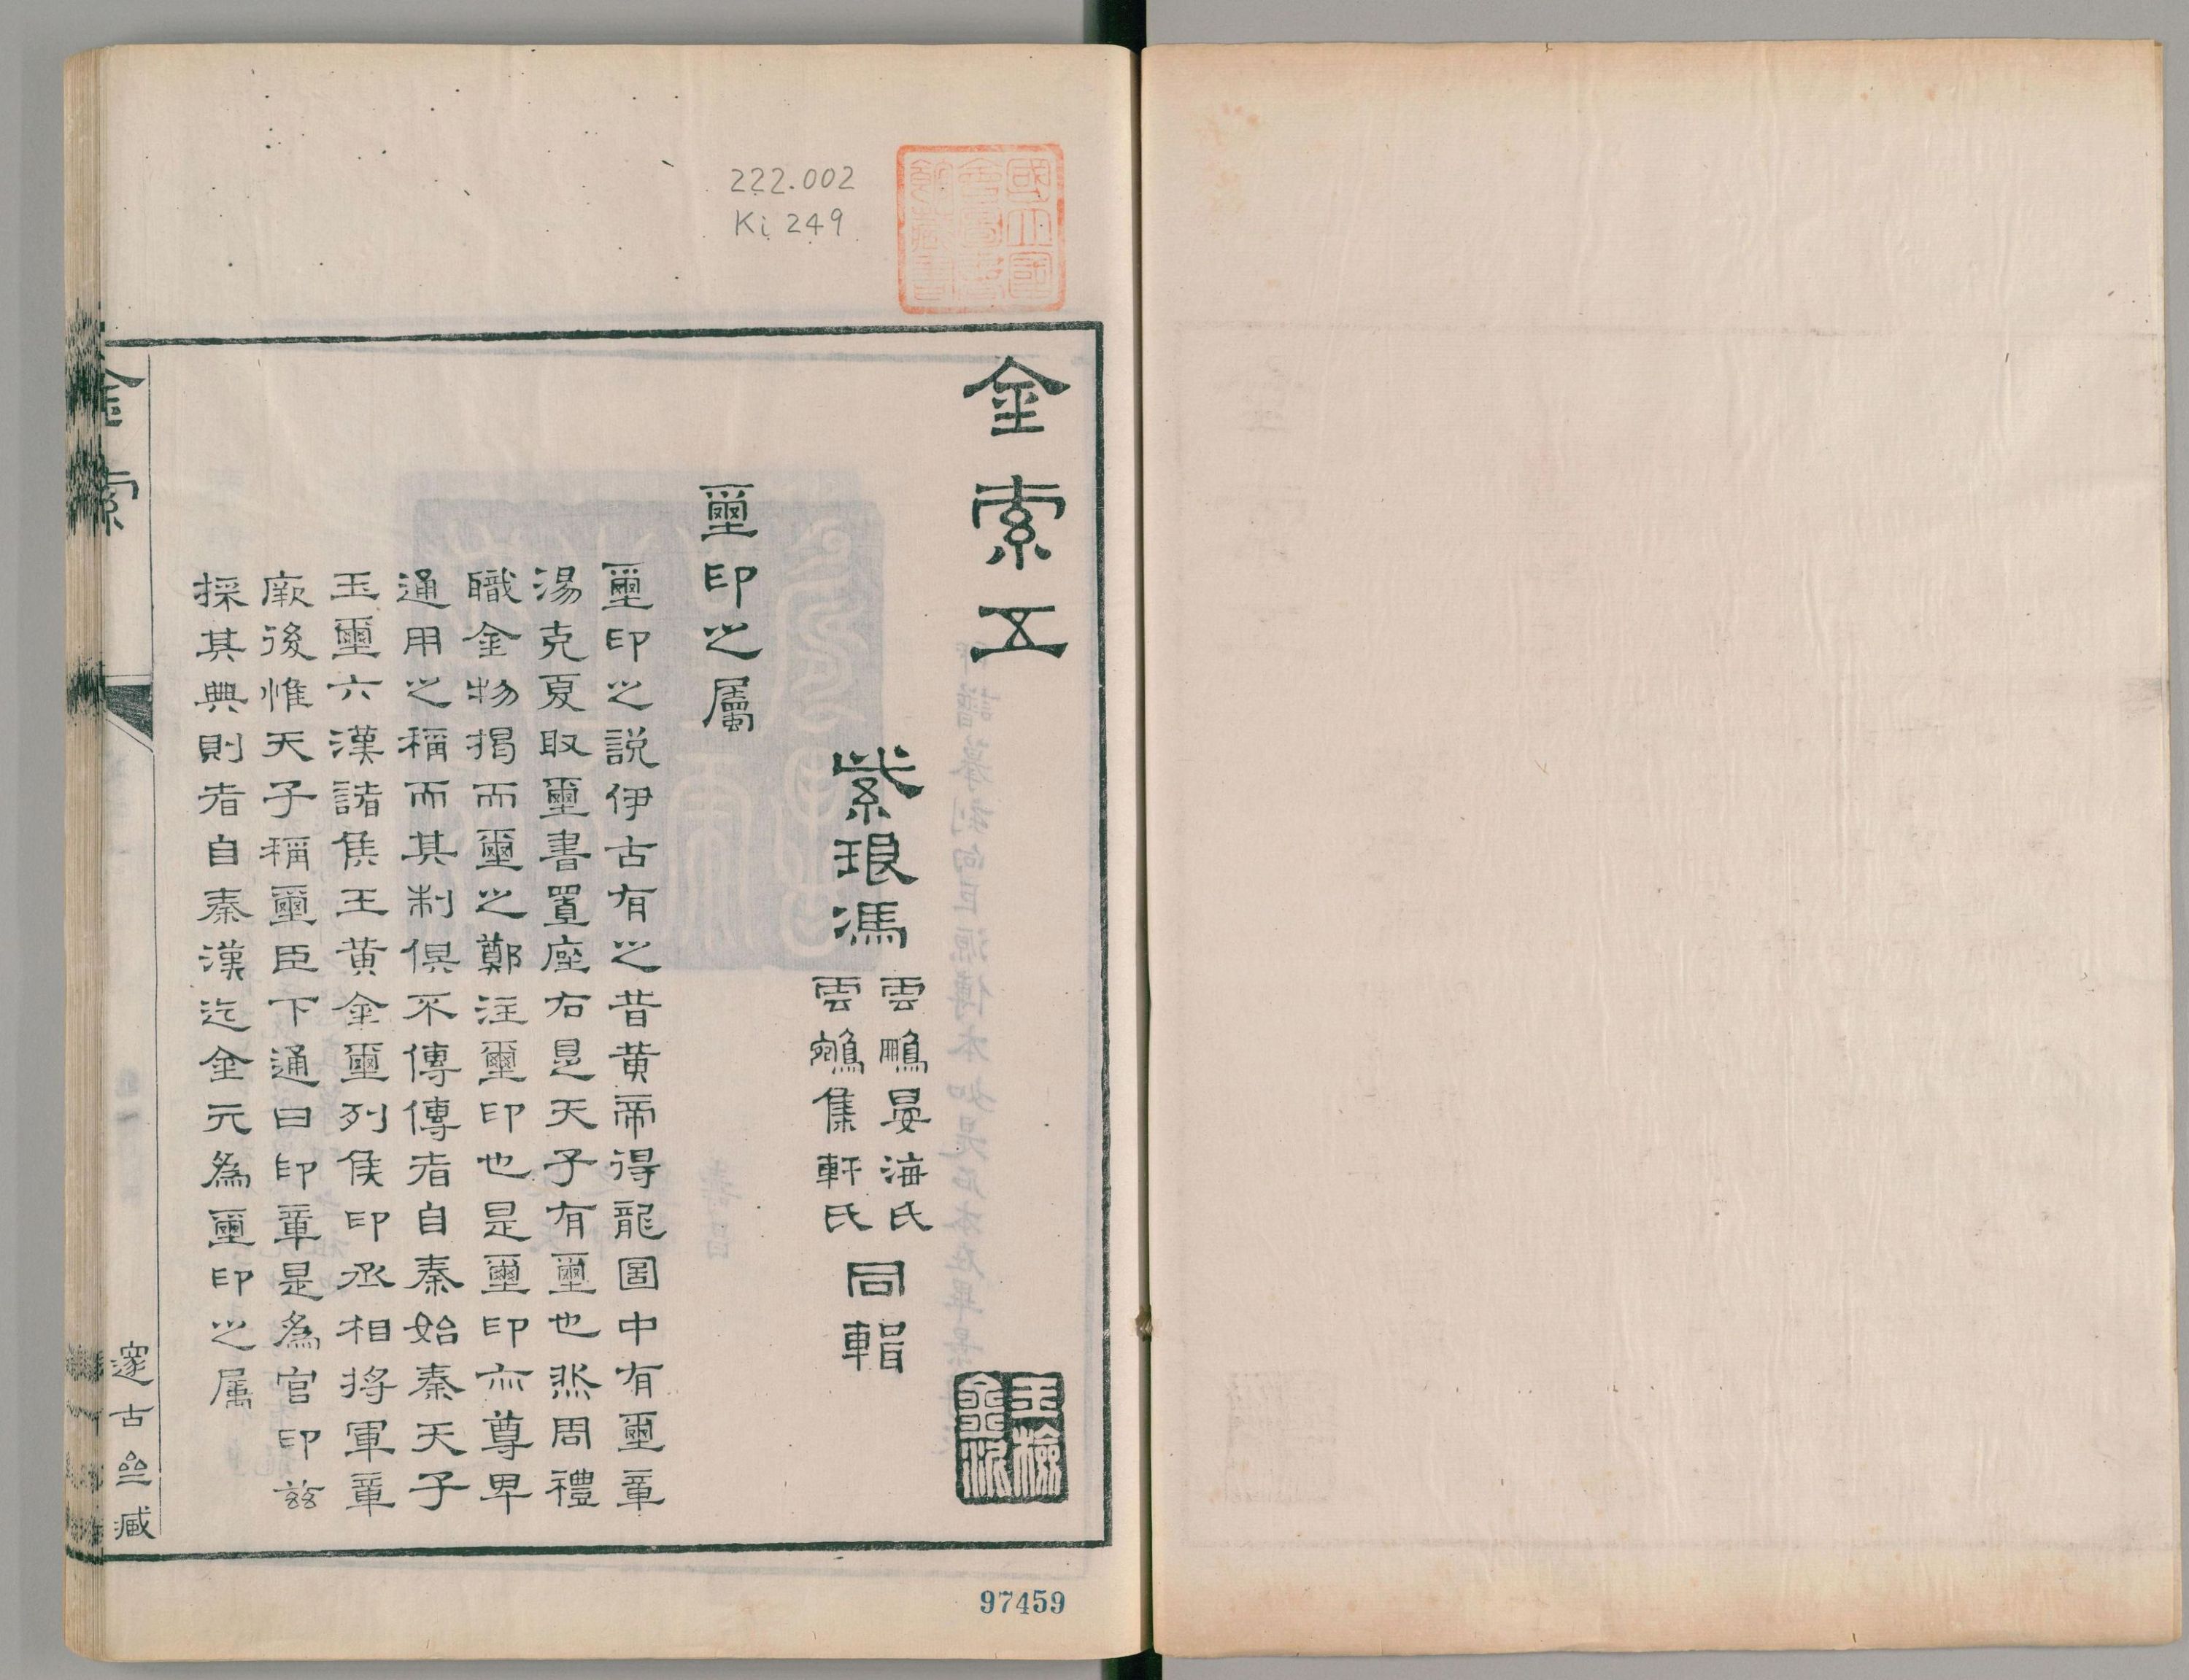 222.002
Ki 249
國立國
會圖書
館藏書
金索五
紫琅馮
雲鵬晏海氏
雲鵷集軒氏
同輯
璽印之屬
璽印之説伊古有之昔黄帝得龍圖中有璽章
湯克夏取璽書置座右是天子有璽也然周禮
職金物揭而璽之鄭注璽印也是璽印亦尊卑
通用之稱而其制俱不傳傳者自秦始秦天子
玉璽六漢諸侯王黄金璽列侯印丞相将軍章
厥後惟天子稱璽臣下通曰印章是為官印兹
採其典則者自秦漢迄金元為璽印之属
金索
邃古亝藏
97459